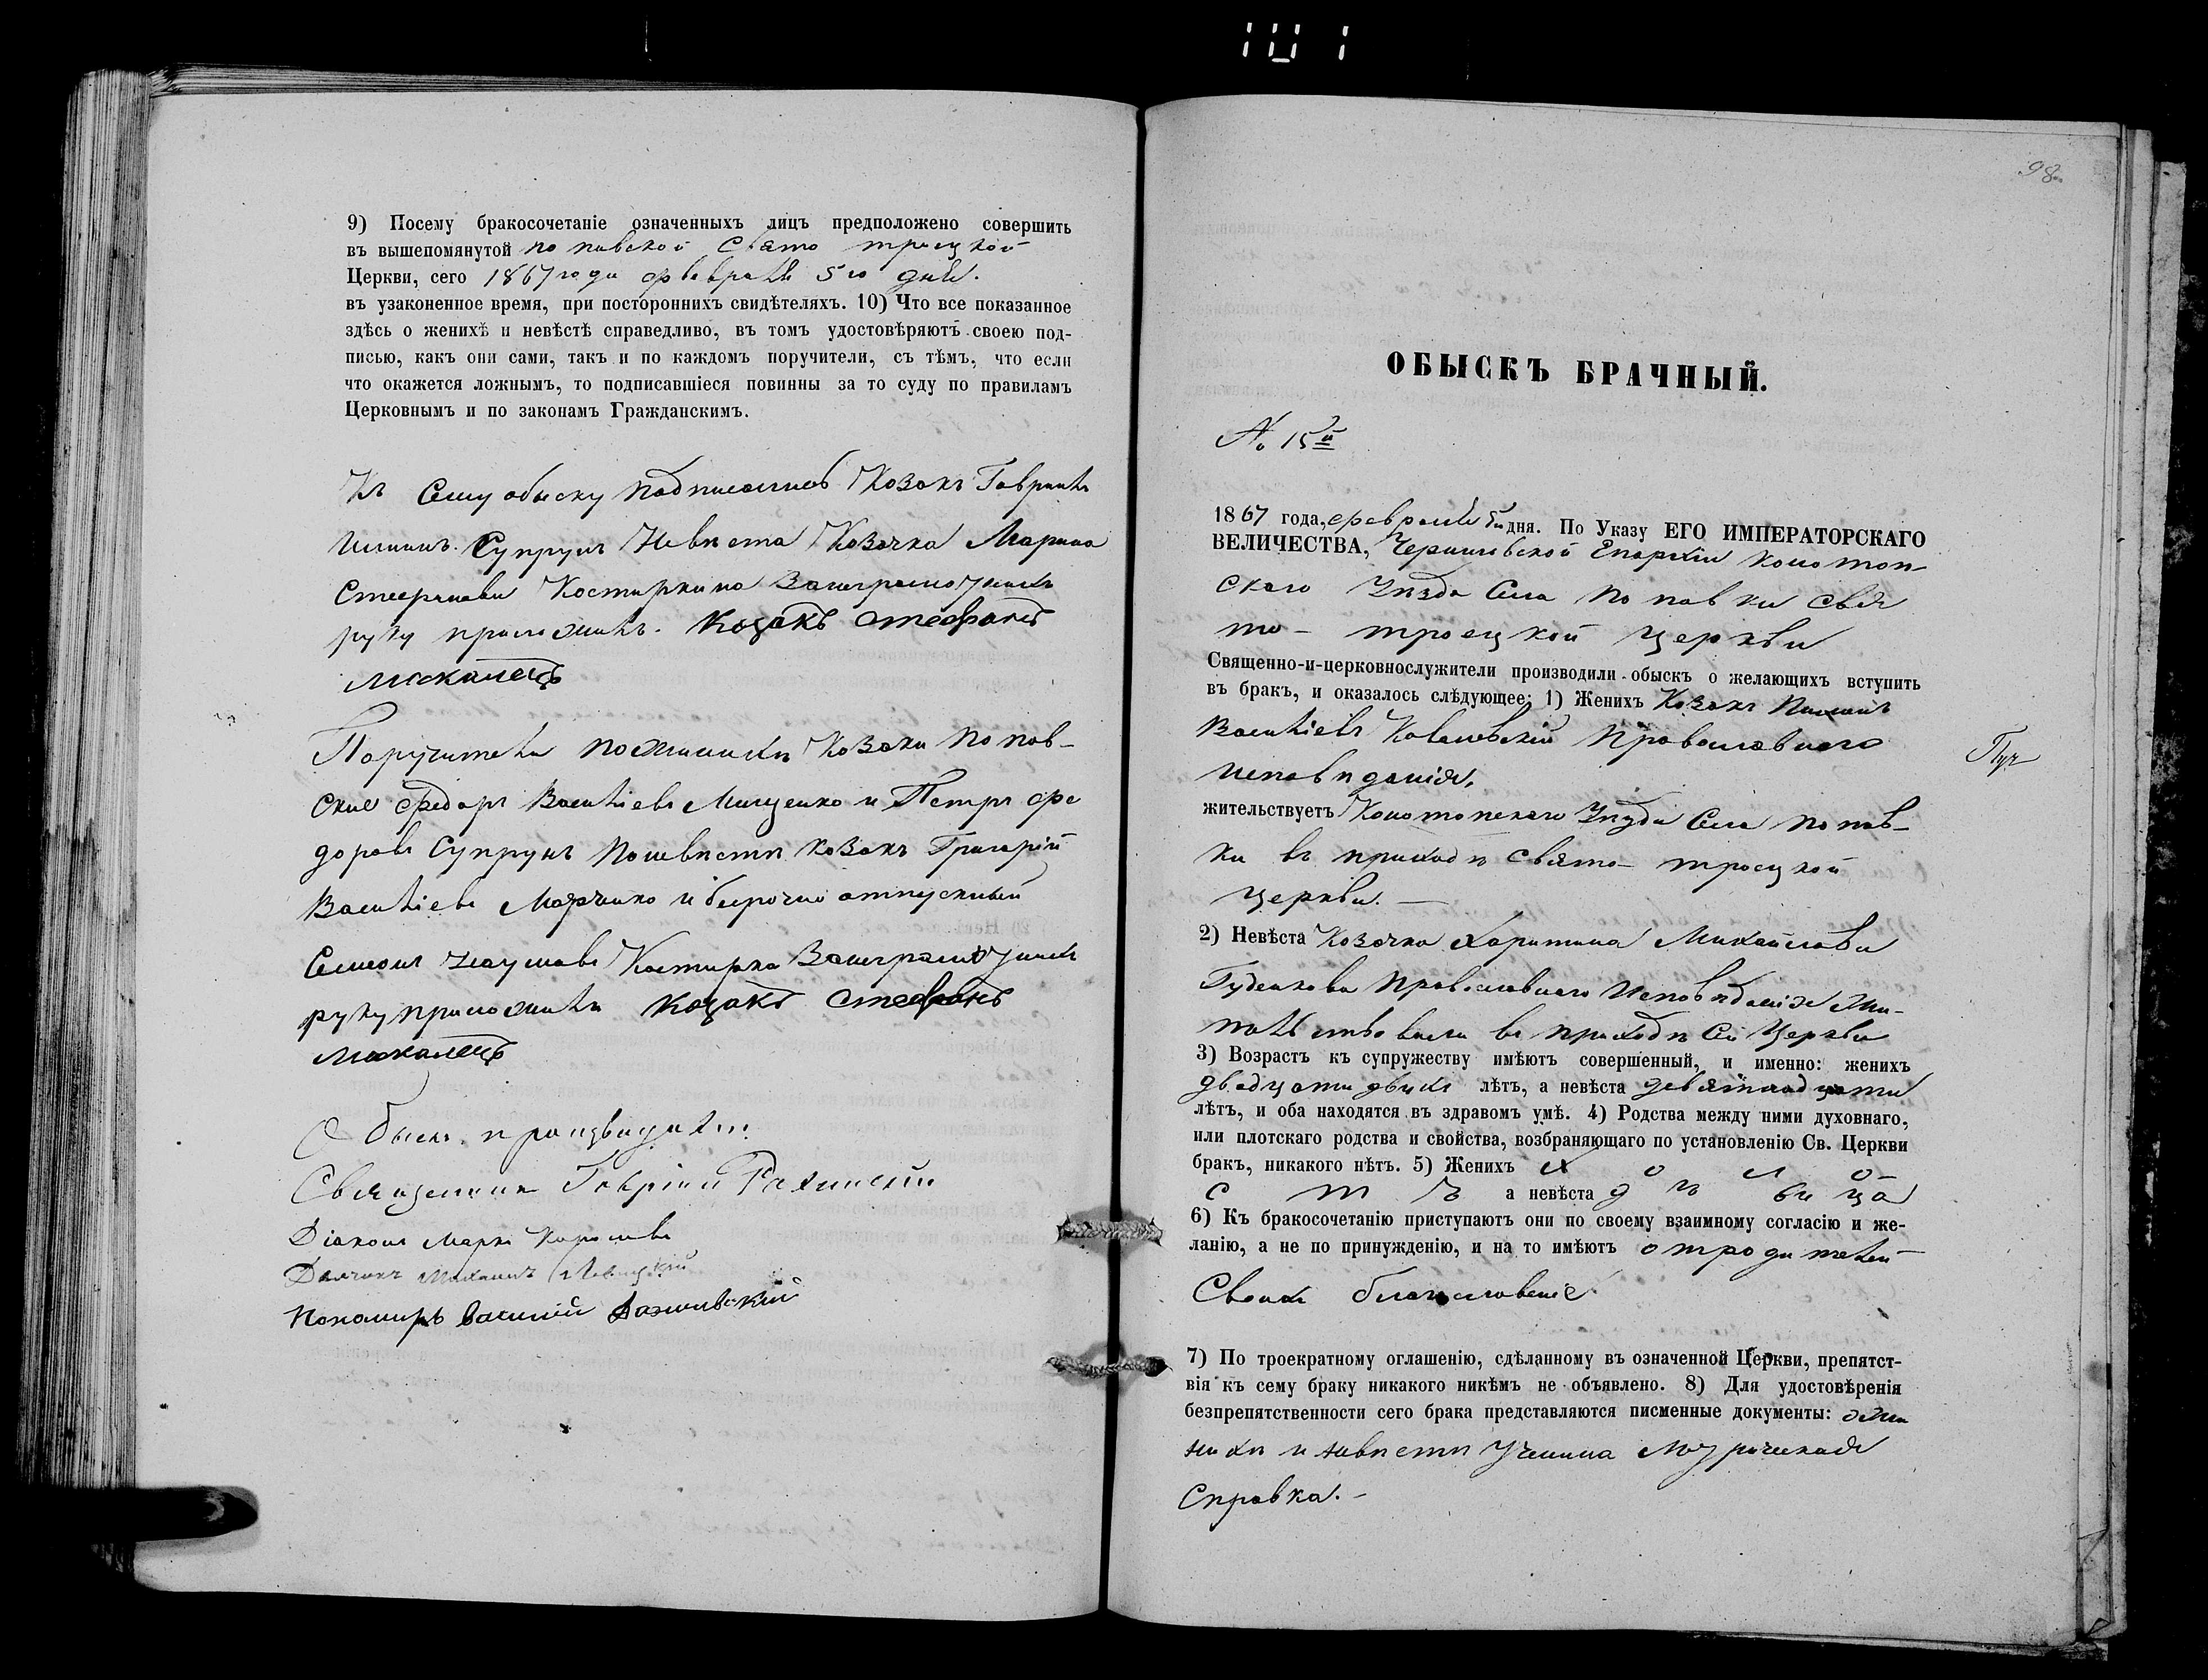 101
9) Посему бракосочетаніе означенныхъ лицъ предположено совершить
въ вышепомянутой поповской Свято троцкой
Церкви, сего 1867 года февраля 5го дня.
въ узаконенное время, при постороннихъ свидѣтеляхъ. 10) Что все показанное
здѣсь о женихѣ и невѣстѣ справедливо, въ томъ удостовѣряютъ своею под-
писью, какъ они сами, такъ и по каждомъ поручители, съ тѣмъ, что если
что окажется ложнымъ, то подписавшіеся повинны за то суду по правиламъ
Церковнымъ и по законамъ Гражданскимъ.
Къ Сему обыску подписались Козакъ Гавріилъ
Супрунъ Невѣста Козачка Марина
Стефанова Костиркина Занеграмотныхъ
руку приложилъ. Козакъ Стефанъ
Москалецъ
Поручители по женихѣ Козаки Попов-
ские Федоръ Василіевъ Мищенко и Петръ Фе
доровъ Супрунъ По невѣстѣ козакъ Григорій
Василіевъ Марченко и безсрочно отпускный
Симеонъ Наумовъ Костирка Занеграмотныхъ
руку приложилъ Козакъ Стефанъ
Москалецъ
Обыскъ производили:
Священникъ Гавріилъ
Діаконъ Марко
Дьячекъ Михаилъ Левицкій
Пономарь Василій
98
ОБЫСКЪ БРАЧНЫЙ.
№ 15й
1867 года, февраля 5 дня. По Указу ЕГО ИМПЕРАТОРСКАГО
ВЕЛИЧЕСТВА, Черниговской Епархіи Коното-
скаго Уѣзда Села Поповки Свя
то-троецкой церкви
Священно-и-церковнослужители производили обыскъ о желающихъ вступить
въ бракъ, и оказалось слѣдующее: 1) Женихъ Козакъ
Василіевъ Ковалевскій Православнаго
исповѣданія,
жительствуетъ Конотопскаго Уѣзда Села Попов-
ки въ приходѣ Свято-троецкой
церкви.
2) Невѣста Козачка Харитина Михайлова
Гуденкова Православнаго Исповѣданія Жи-
въ приходѣ сей Церкви
3) Возрастъ къ супружеству имѣютъ совершенный, и именно: женихъ
двадцати двухъ лѣтъ, а невѣста девятнадцати
лѣтъ, и оба находятся въ здравомъ умѣ. 4) Родства между ними духовнаго,
или плотскаго родства и свойства, возбраняющаго по установленію Св. Церкви
бракъ, никакого нѣтъ. 5) Женихъ х о л о
с т ъ а невѣста д ѣ ви ца
6) Къ бракосочетанію приступаютъ они по своему взаимному согласію и же-
ланію, а не по принужденію, и на то имѣютъ отродителей
Своихъ благословеніе
7) По троекратному оглашенію, сдѣланному въ означенной Церкви, препятст-
вія къ сему браку никакого никѣмъ не объявлено. 8) Для удостовѣренія
безпрепятственности сего брака представляются писменные документы: ожи
нихѣ и невѣстѣ учинена Мѣтрическая
Справка.